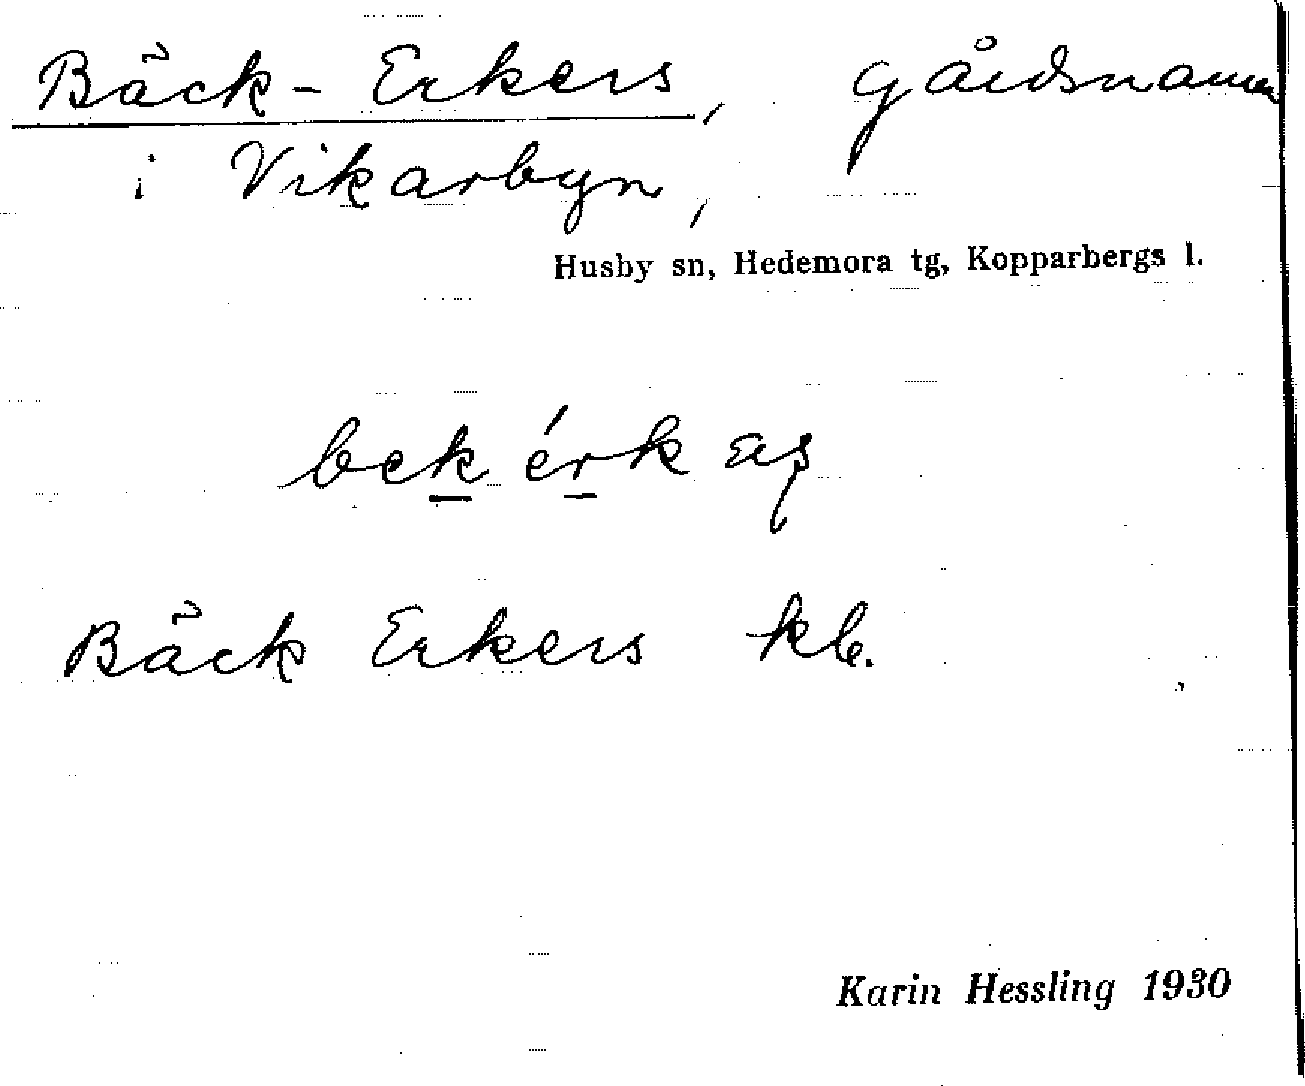 Bäck-Erkers, gårdsnamn
i Vikarbyn,
Husby sn, Hedemora tg, Kopparbergs l.
bek érk
Bäck Erkers kb.
Karin Hessling 1930